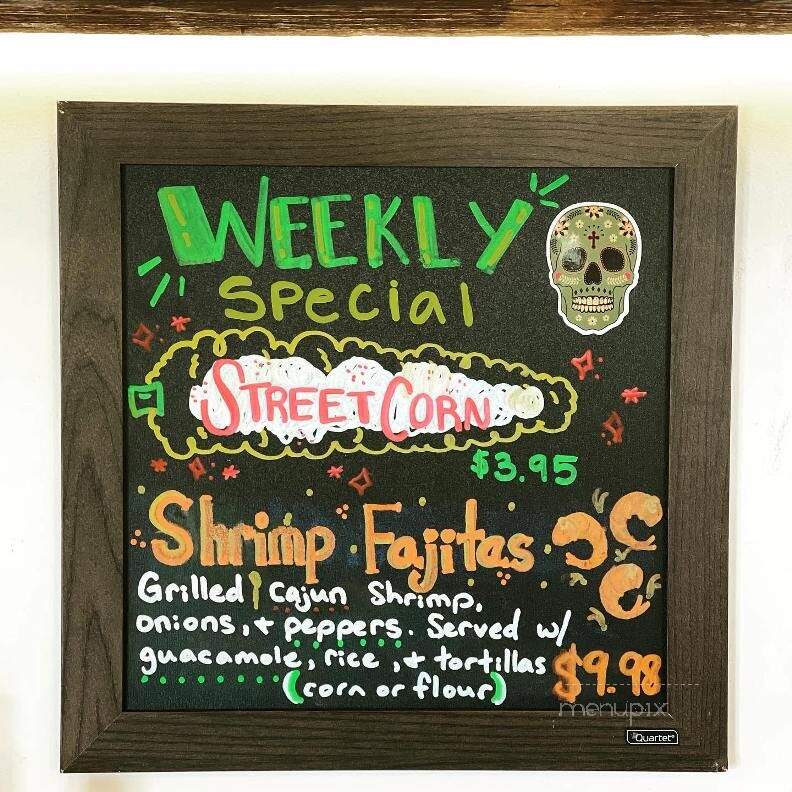 WEEKLY
Special
STREET CORN
$3.95
Shrimp Fajitas
Grilled Cajun Shrimp,
onions, + peppers. Served w/
guacamole, rice, + tortillas
$9.98
(corn or flour)
menupix
Quartet